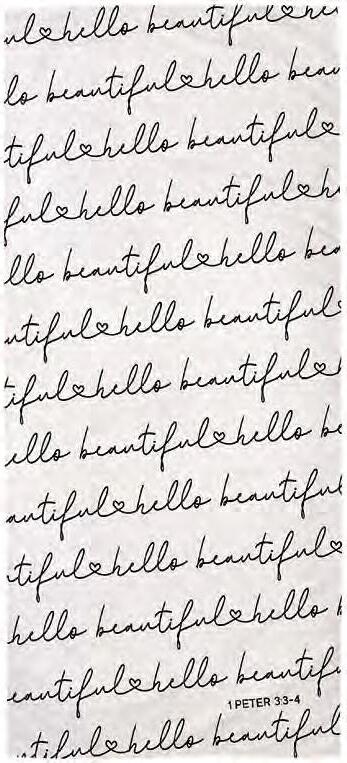 ul♡hello beautiful♡he
lo beautiful♡hello beau
tiful♡hello beautiful♡
ful♡hello beautiful♡h
llo beautiful♡hello bea
utiful♡hello beautiful♡
tiful♡hello beautiful♡
ello beautiful♡hello be
autiful♡hello beautiful
tiful♡hello beautiful♡
hello beautiful♡hello b
eautiful♡hello beautifu
1 PETER 3:3-4
utiful♡hello beautiful